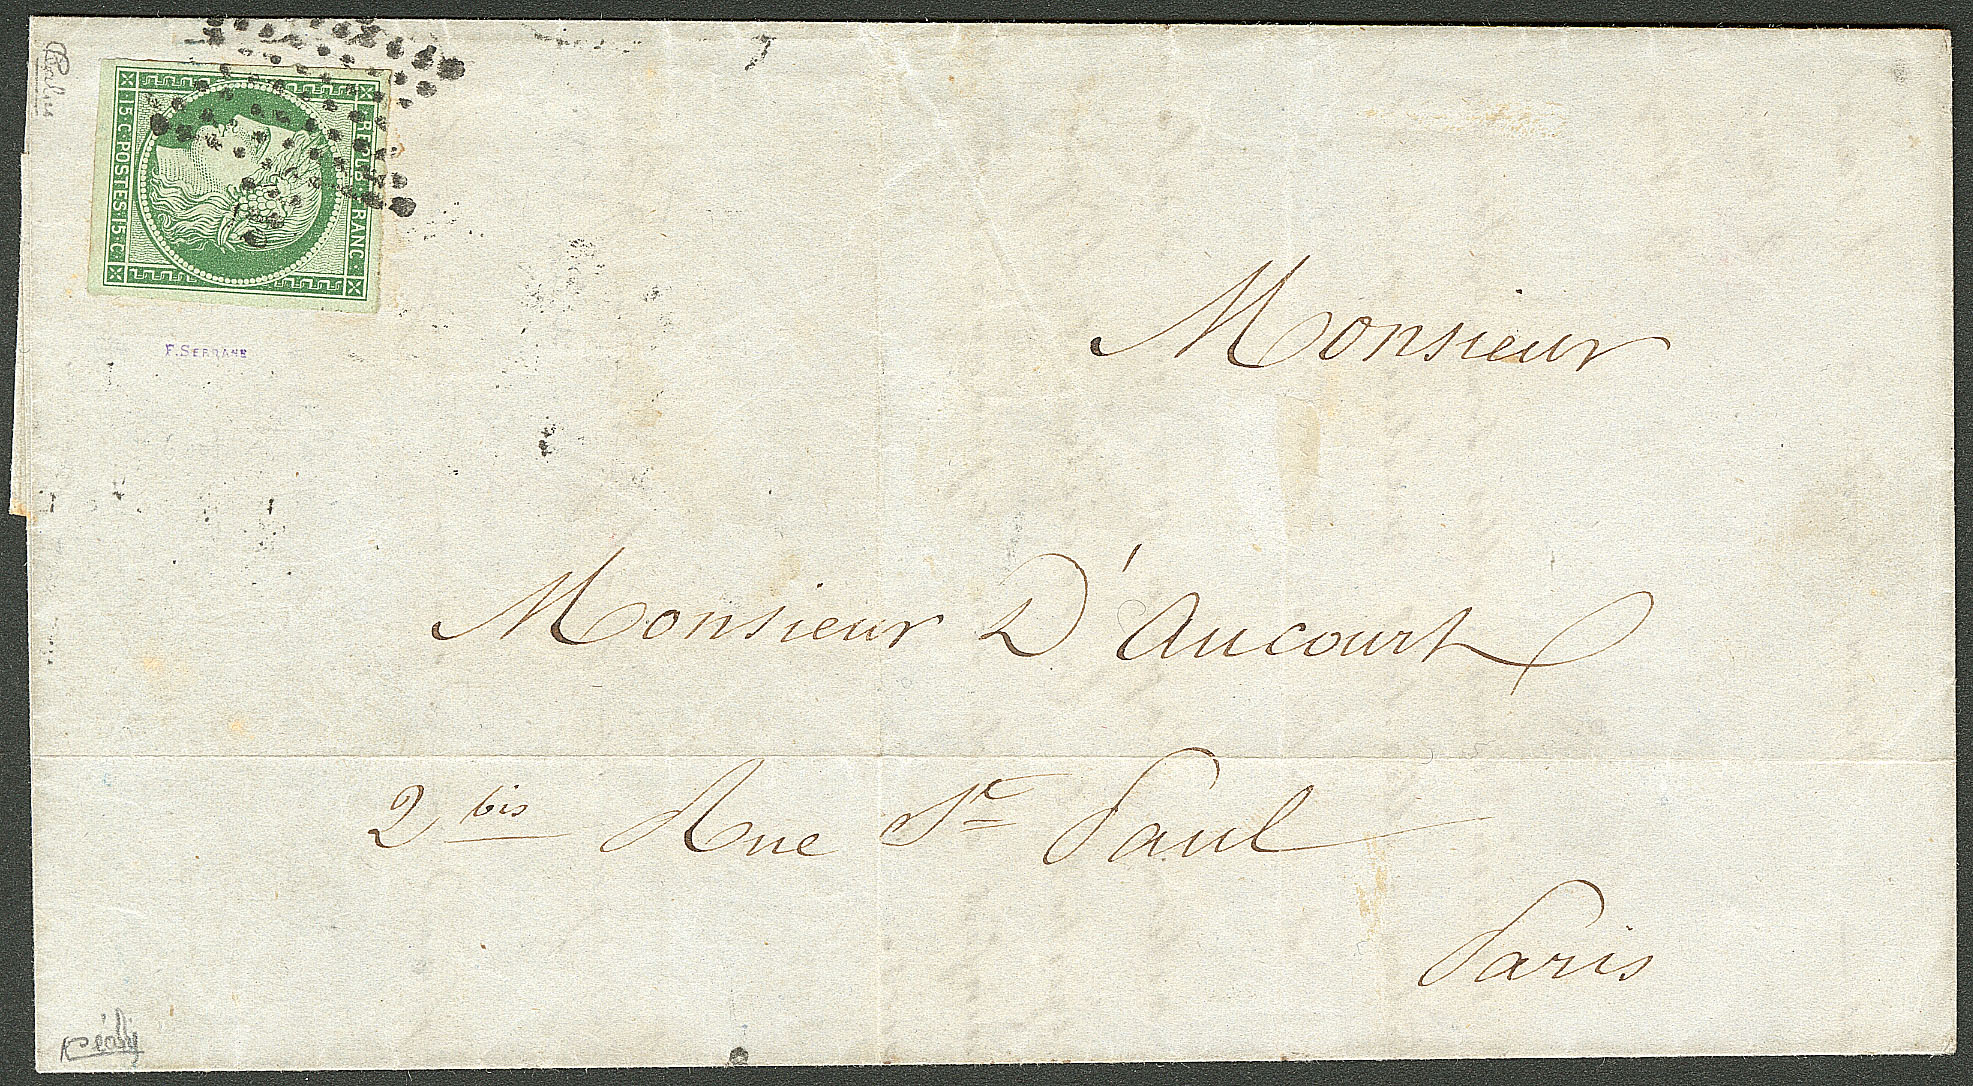 REPUB. FRANC.
15 C. POSTES. 15. C
F. SERRANE
Monsieur
Monsieur D'Aucourt
2 bis Rue St Paul
Paris